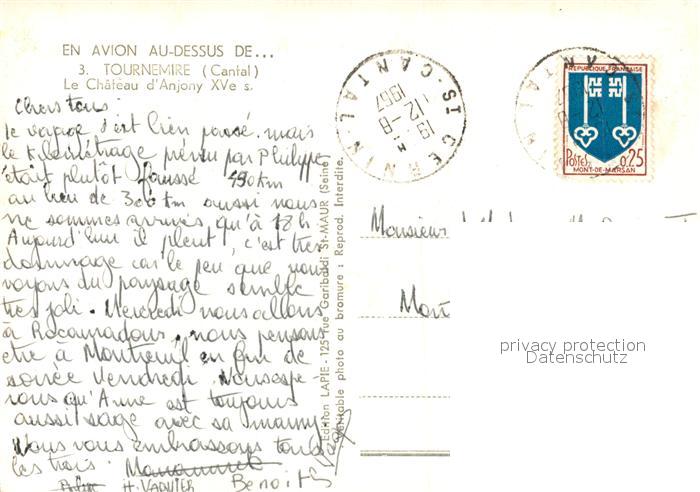 EN AVION AU-DESSUS DE...
3. TOURNEMIRE (Cantal)
Le Château d'Anjony XVe s.
Chers tous
le voyage s'est bien passé mais
le kilométrage prévu par Philippe
était plutôt faussé 490 km
au lieu de 300 km aussi nous
ne sommes arrivés qu'à 18h
Aujourd'hui il pleut, c'est très
dommage car le peu que nous
voyons du paysage semble
très joli. Mercredi nous allons
à Rocamadour, nous pensons
être à Montreuil en fin de
soirée Vendredi. Nous espé
rons qu'Anne est toujours
aussi sage avec sa mamy
Nous vous embrassons tous
les trois.
H. VAQUIER Benoit
Edition LAPIE - 125 rue Garibaldi St-MAUR (Seine)
Véritable photo au bromure : Reprod. Interdite.
ST-CERNIN
CANTAL
1967
REPUBLIQUE FRANÇAISE
POSTES 0,25
MONT-DE-MARSAN
Monsieur
privacy protection
Datenschutz